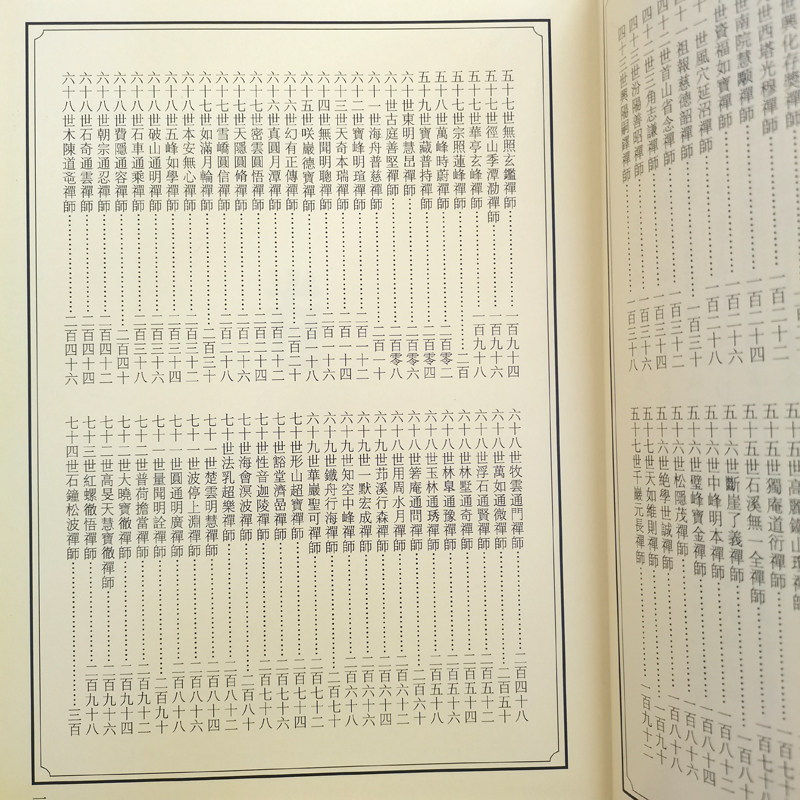 世興化存獎禪師
世西塔光穆禪師……一百二十二
世南院慧顒禪師……一百二十四
世資福如寶禪師……一百二十六
一世風穴延沼禪師……一百二十八
十一祖報慈德韶禪師……一百三十
四十二世首山省念禪師……一百三十二
四十二世三角志謙禪師……一百三十四
四十三世汾陽善昭禪師……一百三十六
四十三世興陽詞鐸禪師……一百三十八
五十五世高麗鐵山瓊禪師
五十五世獨庵道衍禪師……一百七十六
五十五世石溪無一全禪師……一百七十八
五十六世斷崖了義禪師……一百八十
五十六世中峰明本禪師……一百八十二
五十六世璧峰寶金禪師……一百八十四
五十六世松隱茂禪師……一百八十六
五十六世絕學世誠禪師……一百八十八
五十七世天如維則禪師……一百九十
五十七世千巖元長禪師……一百九十二
五十七世無照玄鑑禪師……一百九十四
五十七世徑山季潭泐禪師……一百九十六
五十七世華亭玄峰禪師……一百九十八
五十七世宗照蓮峰禪師……二百
五十八世萬峰時蔚禪師……二百零二
五十九世寶藏普持禪師……二百零四
六十世東明慧旵禪師……二百零六
六十世古庭善堅禪師……二百零八
六十一世海舟普慈禪師……二百一十
六十二世寶峰明瑄禪師……二百一十二
六十三世天奇本瑞禪師……二百一十四
六十四世無聞明聰禪師……二百一十六
六十五世咲巖德寶禪師……二百一十八
六十六世幻有正傳禪師……二百二十
六十六世真圓月潭禪師……二百二十二
六十七世密雲圓悟禪師……二百二十四
六十七世天隱圓脩禪師……二百二十六
六十七世雪嶠圓信禪師……二百二十八
六十七世如滿月輪禪師……二百三十
六十八世本安無心禪師……二百三十二
六十八世五峰如學禪師……二百三十四
六十八世破山通明禪師……二百三十六
六十八世石車通乘禪師……二百三十八
六十八世費隱通容禪師……二百四十
六十八世朝宗通忍禪師……二百四十二
六十八世石奇通雲禪師……二百四十四
六十八世木陳道忞禪師……二百四十六
六十八世牧雲通門禪師……二百四十八
六十八世萬如通微禪師……二百五十
六十八世浮石通賢禪師……二百五十二
六十八世林墅通奇禪師……二百五十四
六十八世林皋通豫禪師……二百五十六
六十八世玉林通琇禪師……二百五十八
六十八世箬庵通問禪師……二百六十
六十八世用周水月禪師……二百六十二
六十九世茆溪行森禪師……二百六十四
六十九世一默宏成禪師……二百六十六
六十九世知空中峰禪師……二百六十八
六十九世鐵舟行海禪師……二百七十
六十九世華巖聖可禪師……二百七十二
七十世形山超寶禪師……二百七十四
七十世豁堂濟嵒禪師……二百七十六
七十世性音迦陵禪師……二百七十八
七十世海會溟波禪師……二百八十
七十世法乳超樂禪師……二百八十二
七十一世楚雲明慧禪師……二百八十四
七十一世波停上淵禪師……二百八十六
七十一世圓通明廣禪師……二百八十八
七十一世量聞明詮禪師……二百九十
七十二世普荷擔當禪師……二百九十二
七十二世大曉寶徹禪師……二百九十四
七十二世高旻天慧寶徹禪師……二百九十六
七十三世紅螺徹悟禪師……二百九十八
七十四世石鐘松波禪師……三百